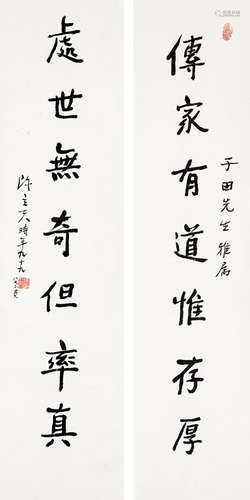 傳家有道惟存厚
子田先生雅屬
處世無奇但率真
陳立夫時年九十九